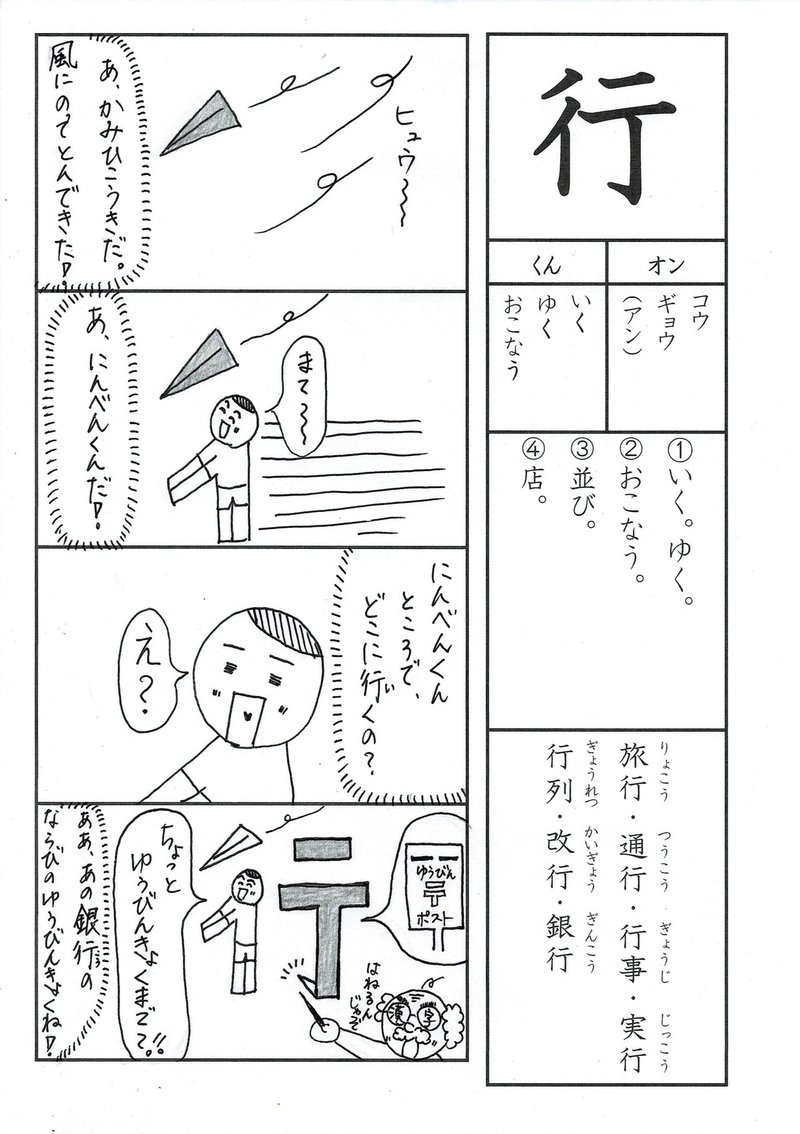 行
オン
くん
コウ
ギョウ
（アン）
いく
ゆく
おこなう
①いく。ゆく。
②おこなう。
③並び。
④店。
りょこう つうこう ぎょうじ じっこう
旅行・通行・行事・実行
ぎょうれつ かいぎょう ぎんこう
行列・改行・銀行
ヒュウ〜〜
あ、かみひこうきだ。
風にのってとんできた！
まて〜〜
あ、にんべんくんだ！
にんべんくん
ところで、
どこに行くの？
い
え？
ゆうびん
〒
ポスト
ちょっと
ゆうびんきょくまで？!!
はねるん
じゃぞ
漢字
ああ、あの銀行の
なら びのゆうびんきょくね！